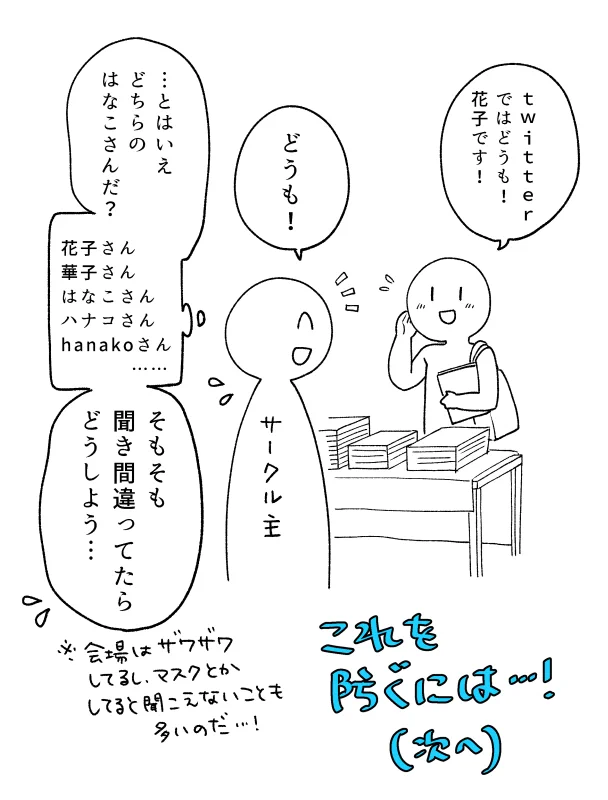 twitter
ではどうも！
花子です！
どうも！
…とはいえ
どちらの
はなこさんだ？
花子さん
華子さん
はなこさん
ハナコさん
hanakoさん
……
そもそも
聞き間違ってたら
どうしよう…
サークル主
※会場はザワザワ
してるし、マスクとか
してると聞こえないことも
多いのだ…！
これを
防ぐには…！
(次へ)